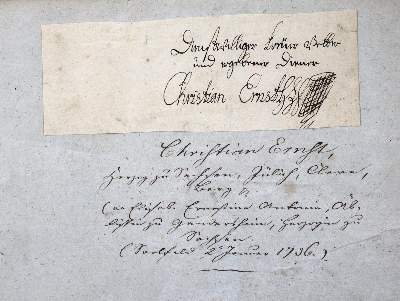 Dienstwilliger treüer Vetter
und ergebener Diener
Christian Ernst
Christian Ernst,
Herzog zu Sachsen, Jülich, Cleve,
Berg
(an Elisab. Ernestine Antonie, Äb-
tissin zu Gandersheim, Herzogin zu
Sachsen.
(Saalfeld 2 Januar 1736.)